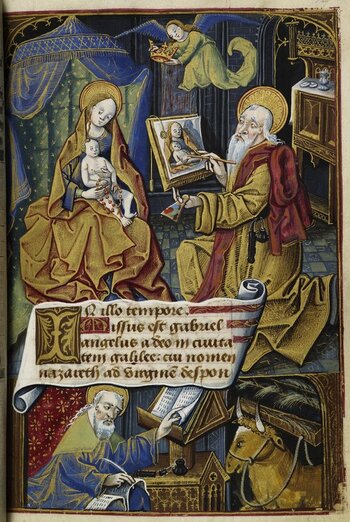 IN illo tempore.
Missus est gabriel
angelus a deo in ciuita
tem galilee: cui nomen
nazareth ad virginẽ despon